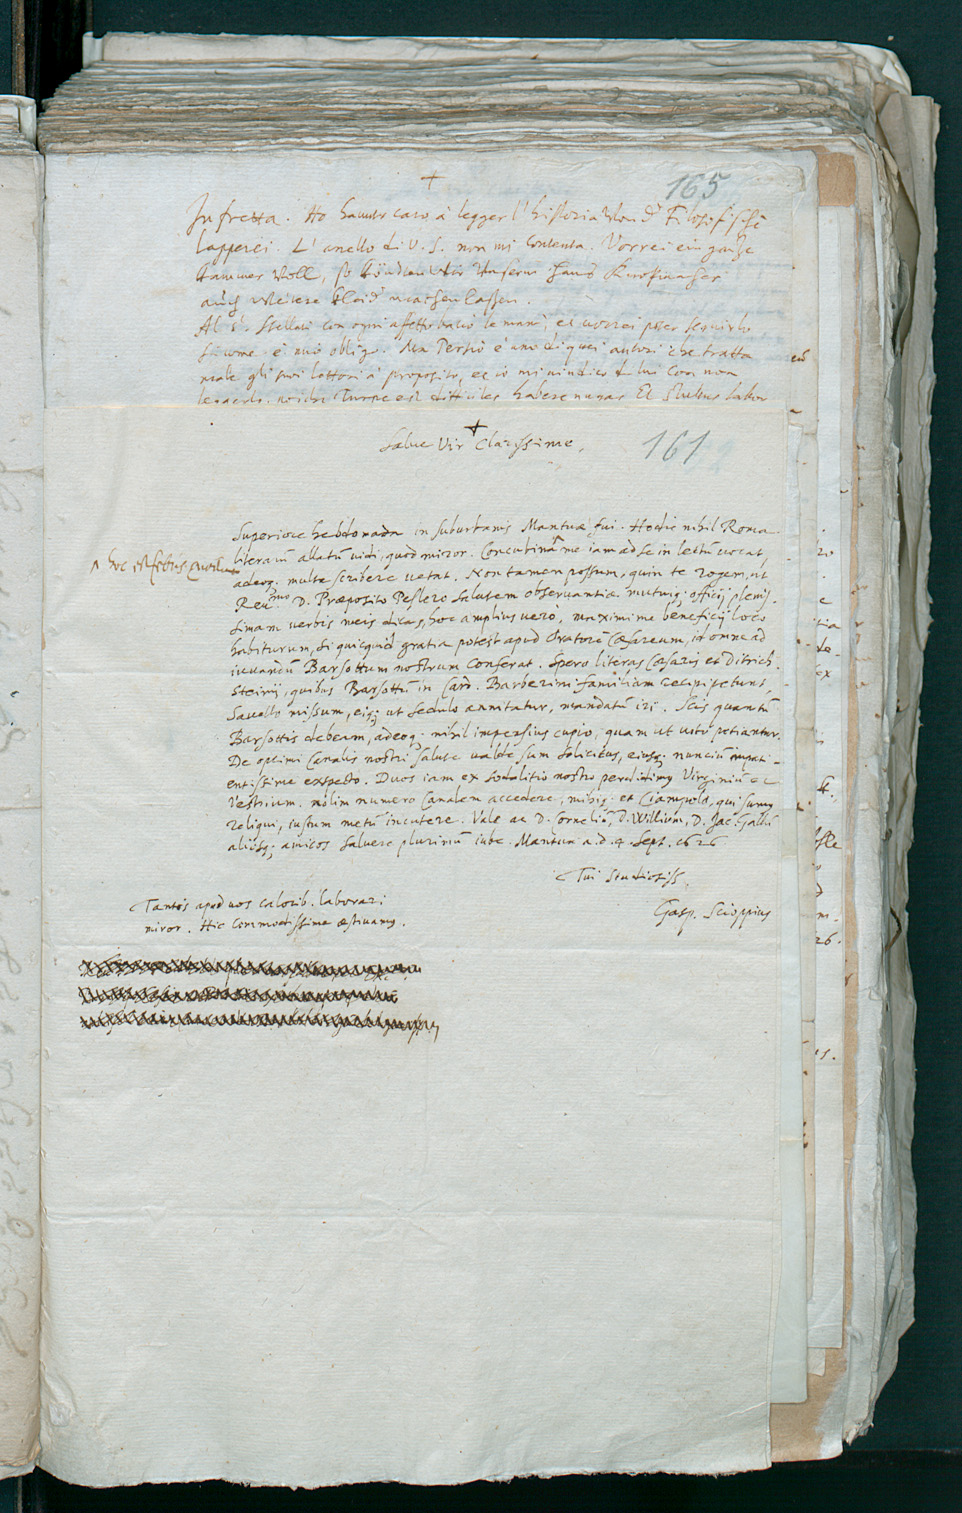 +
165
In fretta. Ho havuto caro à legger l'historia von d Filosofische
lapperei. L'anello di V. S. non mi contenta. Vorrei ein ganze
Kammer voll, so
auch weitere Kleid machen lassen.
Al S.r Stellati con ogni affetto bacio le mani, et vorrei poter seguirlo
si come è mio obligo. Ma Persio è uno di quei autori che tratta
male gli suoi lettori à proposito, et io mi vindico di lui con non
leggerlo. Turpe est difficiles habere nugas Et stultus labor
+
161
Salve Vir Clarissime,
Superiore hebdomada in suburbanis Mantuæ fui. Hodie nihil Roma
literarū allatū vidi, quod miror. Concubina ^ me iam ad se in lectū vocat,
^ hoc est febris
adeoq; multa scribere vetat. Non tamen possum, quin te rogem, ut
Reu.mo D. Præposito Peslero salutem observantiæ mutuiq; officij plenis-
simam verbis meis dicas, hoc amplius vero, maximi me beneficij loco
habiturum, si quicquid gratia potest apud Oratorē Cæsareum, id omne ad
iuvandū Barsottum nostrum conferat. Spero literas Cæsaris et Ditrich-
steinij, quibus Barsottū in Card. Barberini familiam recipi petunt,
Savello missum, eiq; ut sedulo annitatur, mandatū iri. Scis quantū
Barsottis debeam, adeoq; nihil impensius cupio, quam ut voto potiantur.
De optimi Canalis nostri salute valde sum solicitus, eiusq; nunciū impati-
entissime expecto. Duos iam ex sodalitio nostro perdidimus Virginiū et
Vestrium. nolim numero Canalem accedere, mihiq; et Ciampolo, qui sumus
reliqui, iustum metū incutere. Vale ac D. Corneliū, D. Willium, D. Jac. Gallū
aliosq; amicos salvere plurimū iube. Mantua a. d. 4. Sept. 1626
Tui Studiosiss.
Gasp. Scioppius
Tantis apud vos calorib. laborari
miror. Hic commodissime æstivamus.